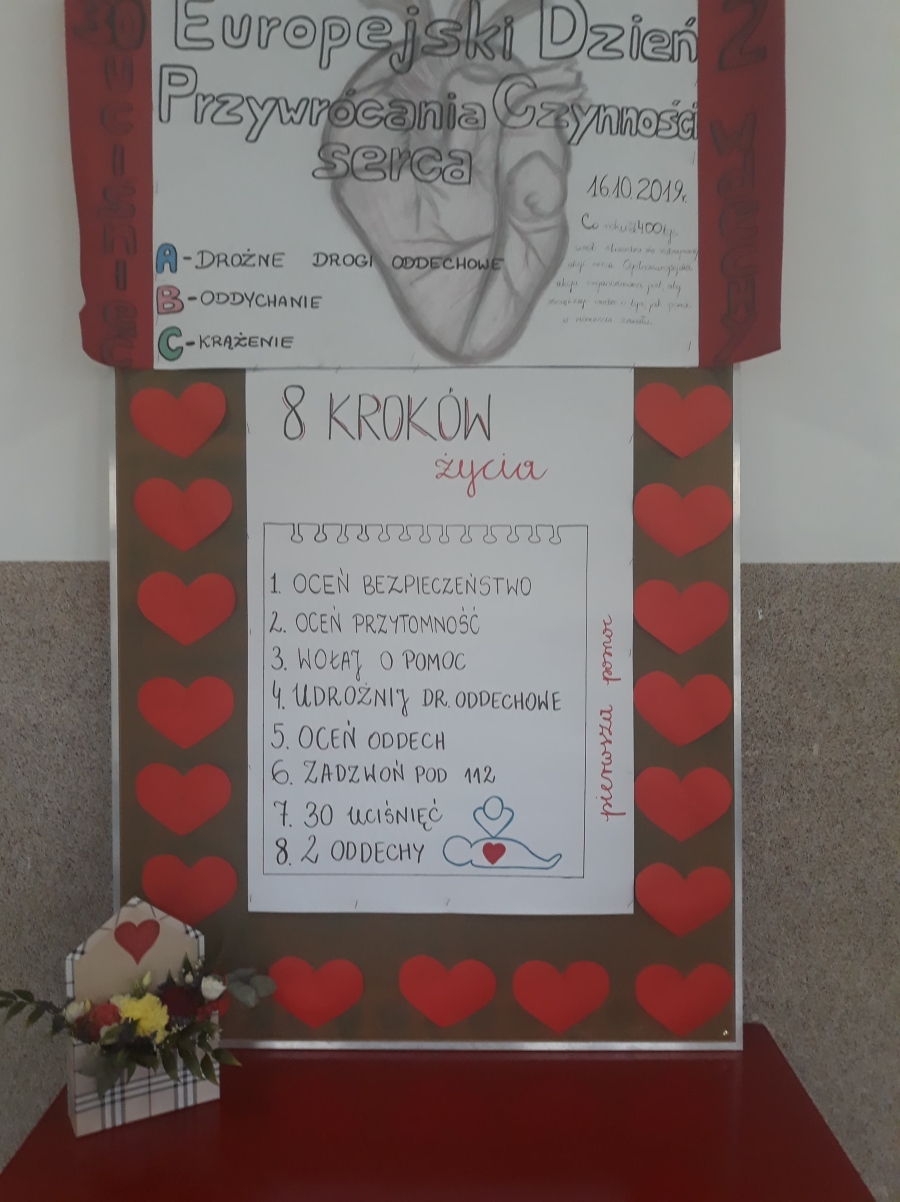 Europejski Dzień
Przywrócania Czynności
serca
30 UCIŚNIĘĆ
2 WDECHY
16.10.2019r.
Co roku 400tyś.
A-DROŻNE DROGI ODDECHOWE
B-ODDYCHANIE
C-KRĄŻENIE
8 KROKÓW
życia
1. OCEŃ BEZPIECZEŃSTWO
2. OCEŃ PRZYTOMNOŚĆ
3. WOŁAJ O POMOC
4. UDROŻNIJ DR. ODDECHOWE
5. OCEŃ ODDECH
6. ZADZWOŃ POD 112
7. 30 UCIŚNIĘĆ
8. 2 ODDECHY
pierwsza pomoc